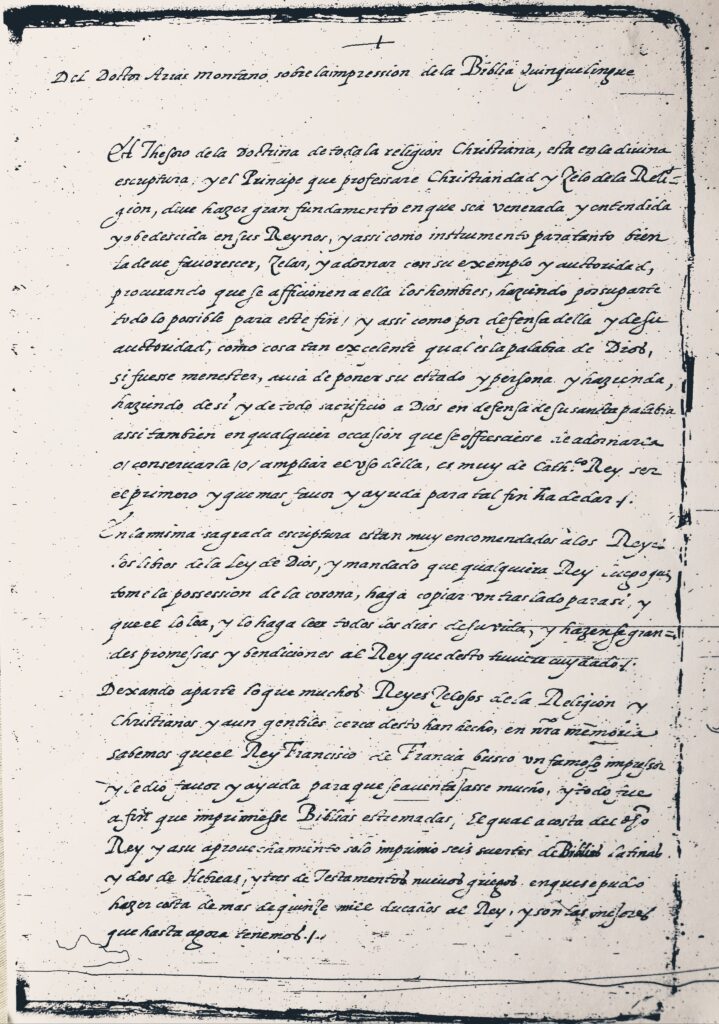 +
Del Doctor Arias montano, sobre la impression de la Biblia Quinquelingue
El Thesoro de la Doctrina de toda la religion Christiana, esta en la divina
escriptura, y el Principe que professare Christiandad y Zelo de la Reli-
gion, deve hazer gran fundamento en que sea venerada y entendida
y obedescida en sus Reynos, y assi como instrumento para tanto bien
la deve favorescer, Zelar, y adornar con su exemplo y autoridad,
procurando que se afficionen a ella los hombres, haziendo por su parte
todo lo possible para este fin, y assi como por defensa della y de su
autoridad, como cosa tan excelente qual es la palabra de Dios,
si fuesse menester, avia de poner su estado y persona y hazienda,
haziendo de si y de todo sacrificio a Dios en defensa de su sancta palabra
assi tambien en qualquier occasion que se offresciesse de adornarla
o/ conservarla /o/ ampliar el uso della, es muy de Cath.co Rey ser
el primero y que mas favor y ayuda para tal fin ha de dar /.
En la misma sagrada escriptura estan muy encomendados a los Reyes
los libros de la Ley de Dios, y mandado que qualquiera Rey luego que
tome la possession de la corona, haga copiar un traslado para si, y
que el lo lea, y lo haga leer todos los dias de su vida, y hazense gran-
des promessas y bendiciones al Rey que desto tuviere cuydado /.
Dexando aparte lo que muchos Reyes Zelosos de la Religion y
Christianos y aun gentiles cerca desto han hecho, en nra memoria
sabemos que el Rey Francisco de Francia busco un famoso impressor
y le dio favor y ayuda para que se aventajasse mucho, y todo fue
a fin que imprimiesse Biblias estremadas, El qual a costa del dho
Rey y a su aprovechamiento solo imprimio seis suertes de Biblias latinas
y dos de Hebreas, y tres de Testamentos nuevos griegos en que se pudo
hazer costa de mas de quinze mill ducados al Rey, y son las mejores
que hasta agora tenemos./.